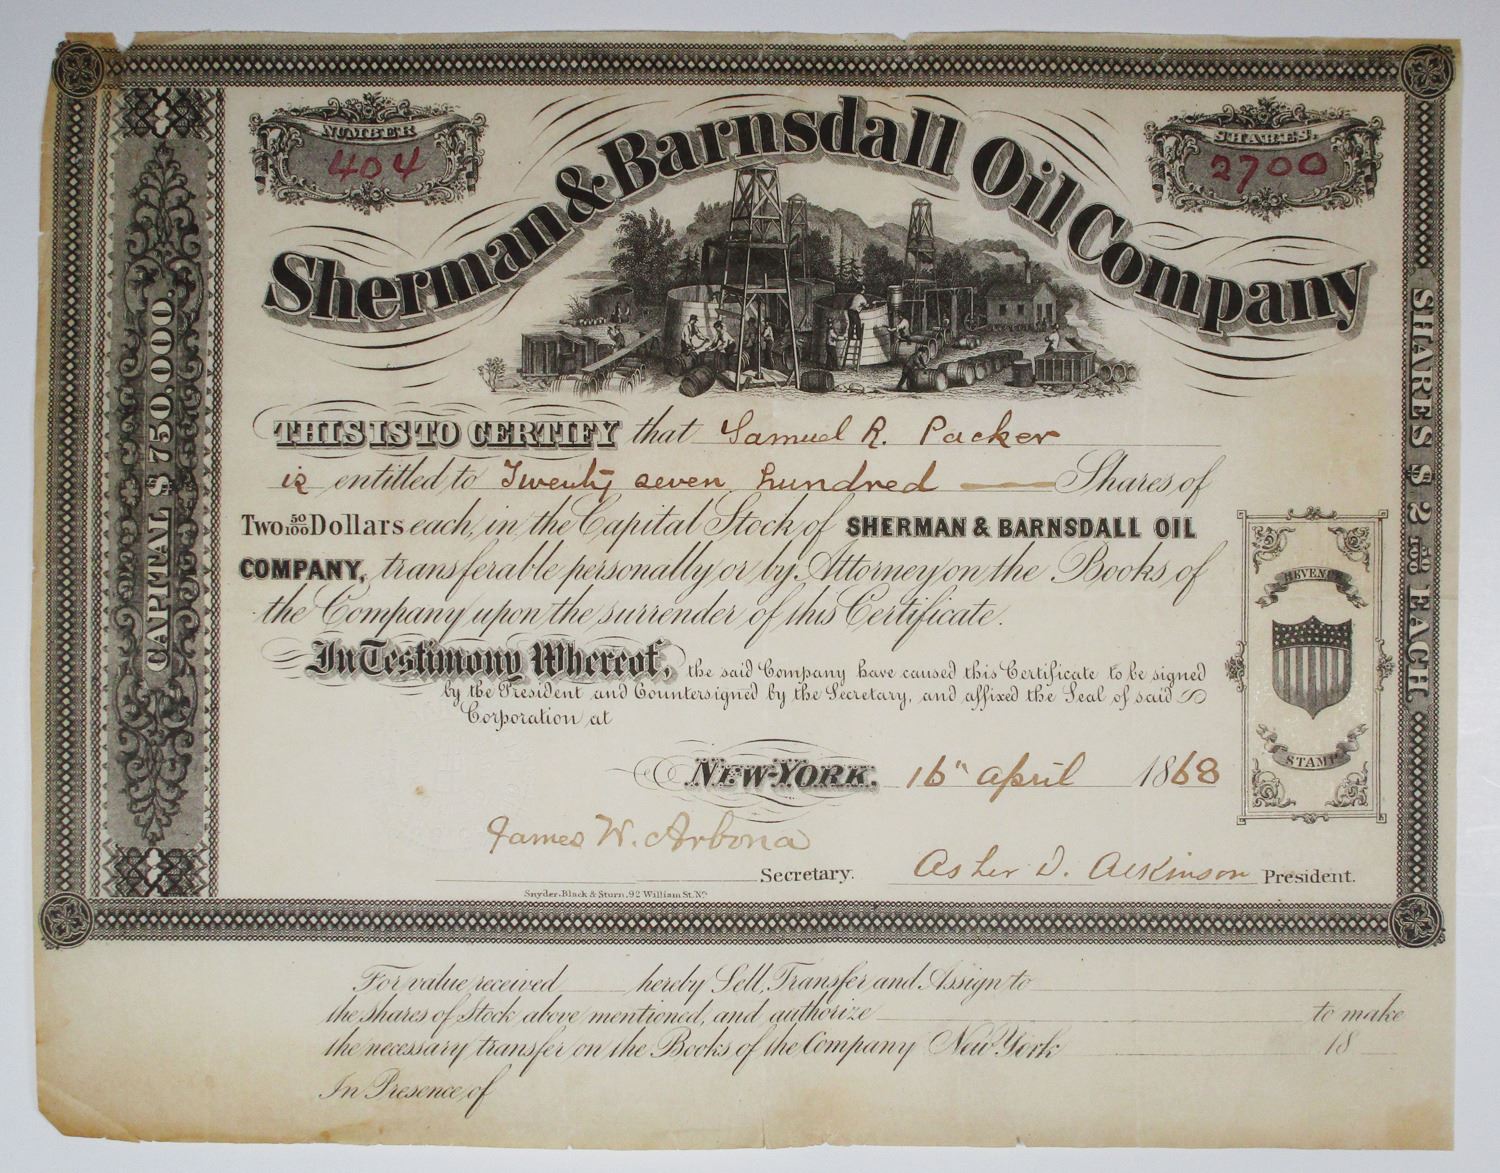 NUMBER
404
SHARES.
2700
Sherman & Barnsdall Oil Company
CAPITAL $750,000.
SHARES $2 50/100 EACH.
THIS IS TO CERTIFY that Samuel R. Packer
is entitled to Twenty seven hundred Shares of
Two 50/100 Dollars each, in the Capital Stock of SHERMAN & BARNSDALL OIL
COMPANY, transferable personally or by Attorney on the Books of
the Company upon the surrender of this Certificate.
In Testimony Whereof, the said Company have caused this Certificate to be signed
by the President and Countersigned by the Secretary, and affixed the Seal of said
Corporation at
REVENUE
STAMP
NEW-YORK, 16th april 1868
James W. Arbona
Secretary.
Asher D. Atkinson President.
Snyder, Black & Sturn, 92 William St. N.Y.
For value received hereby Sell, Transfer and Assign to
the shares of Stock above mentioned, and authorize to make
the necessary transfer on the Books of the Company New York 18
In Presence of